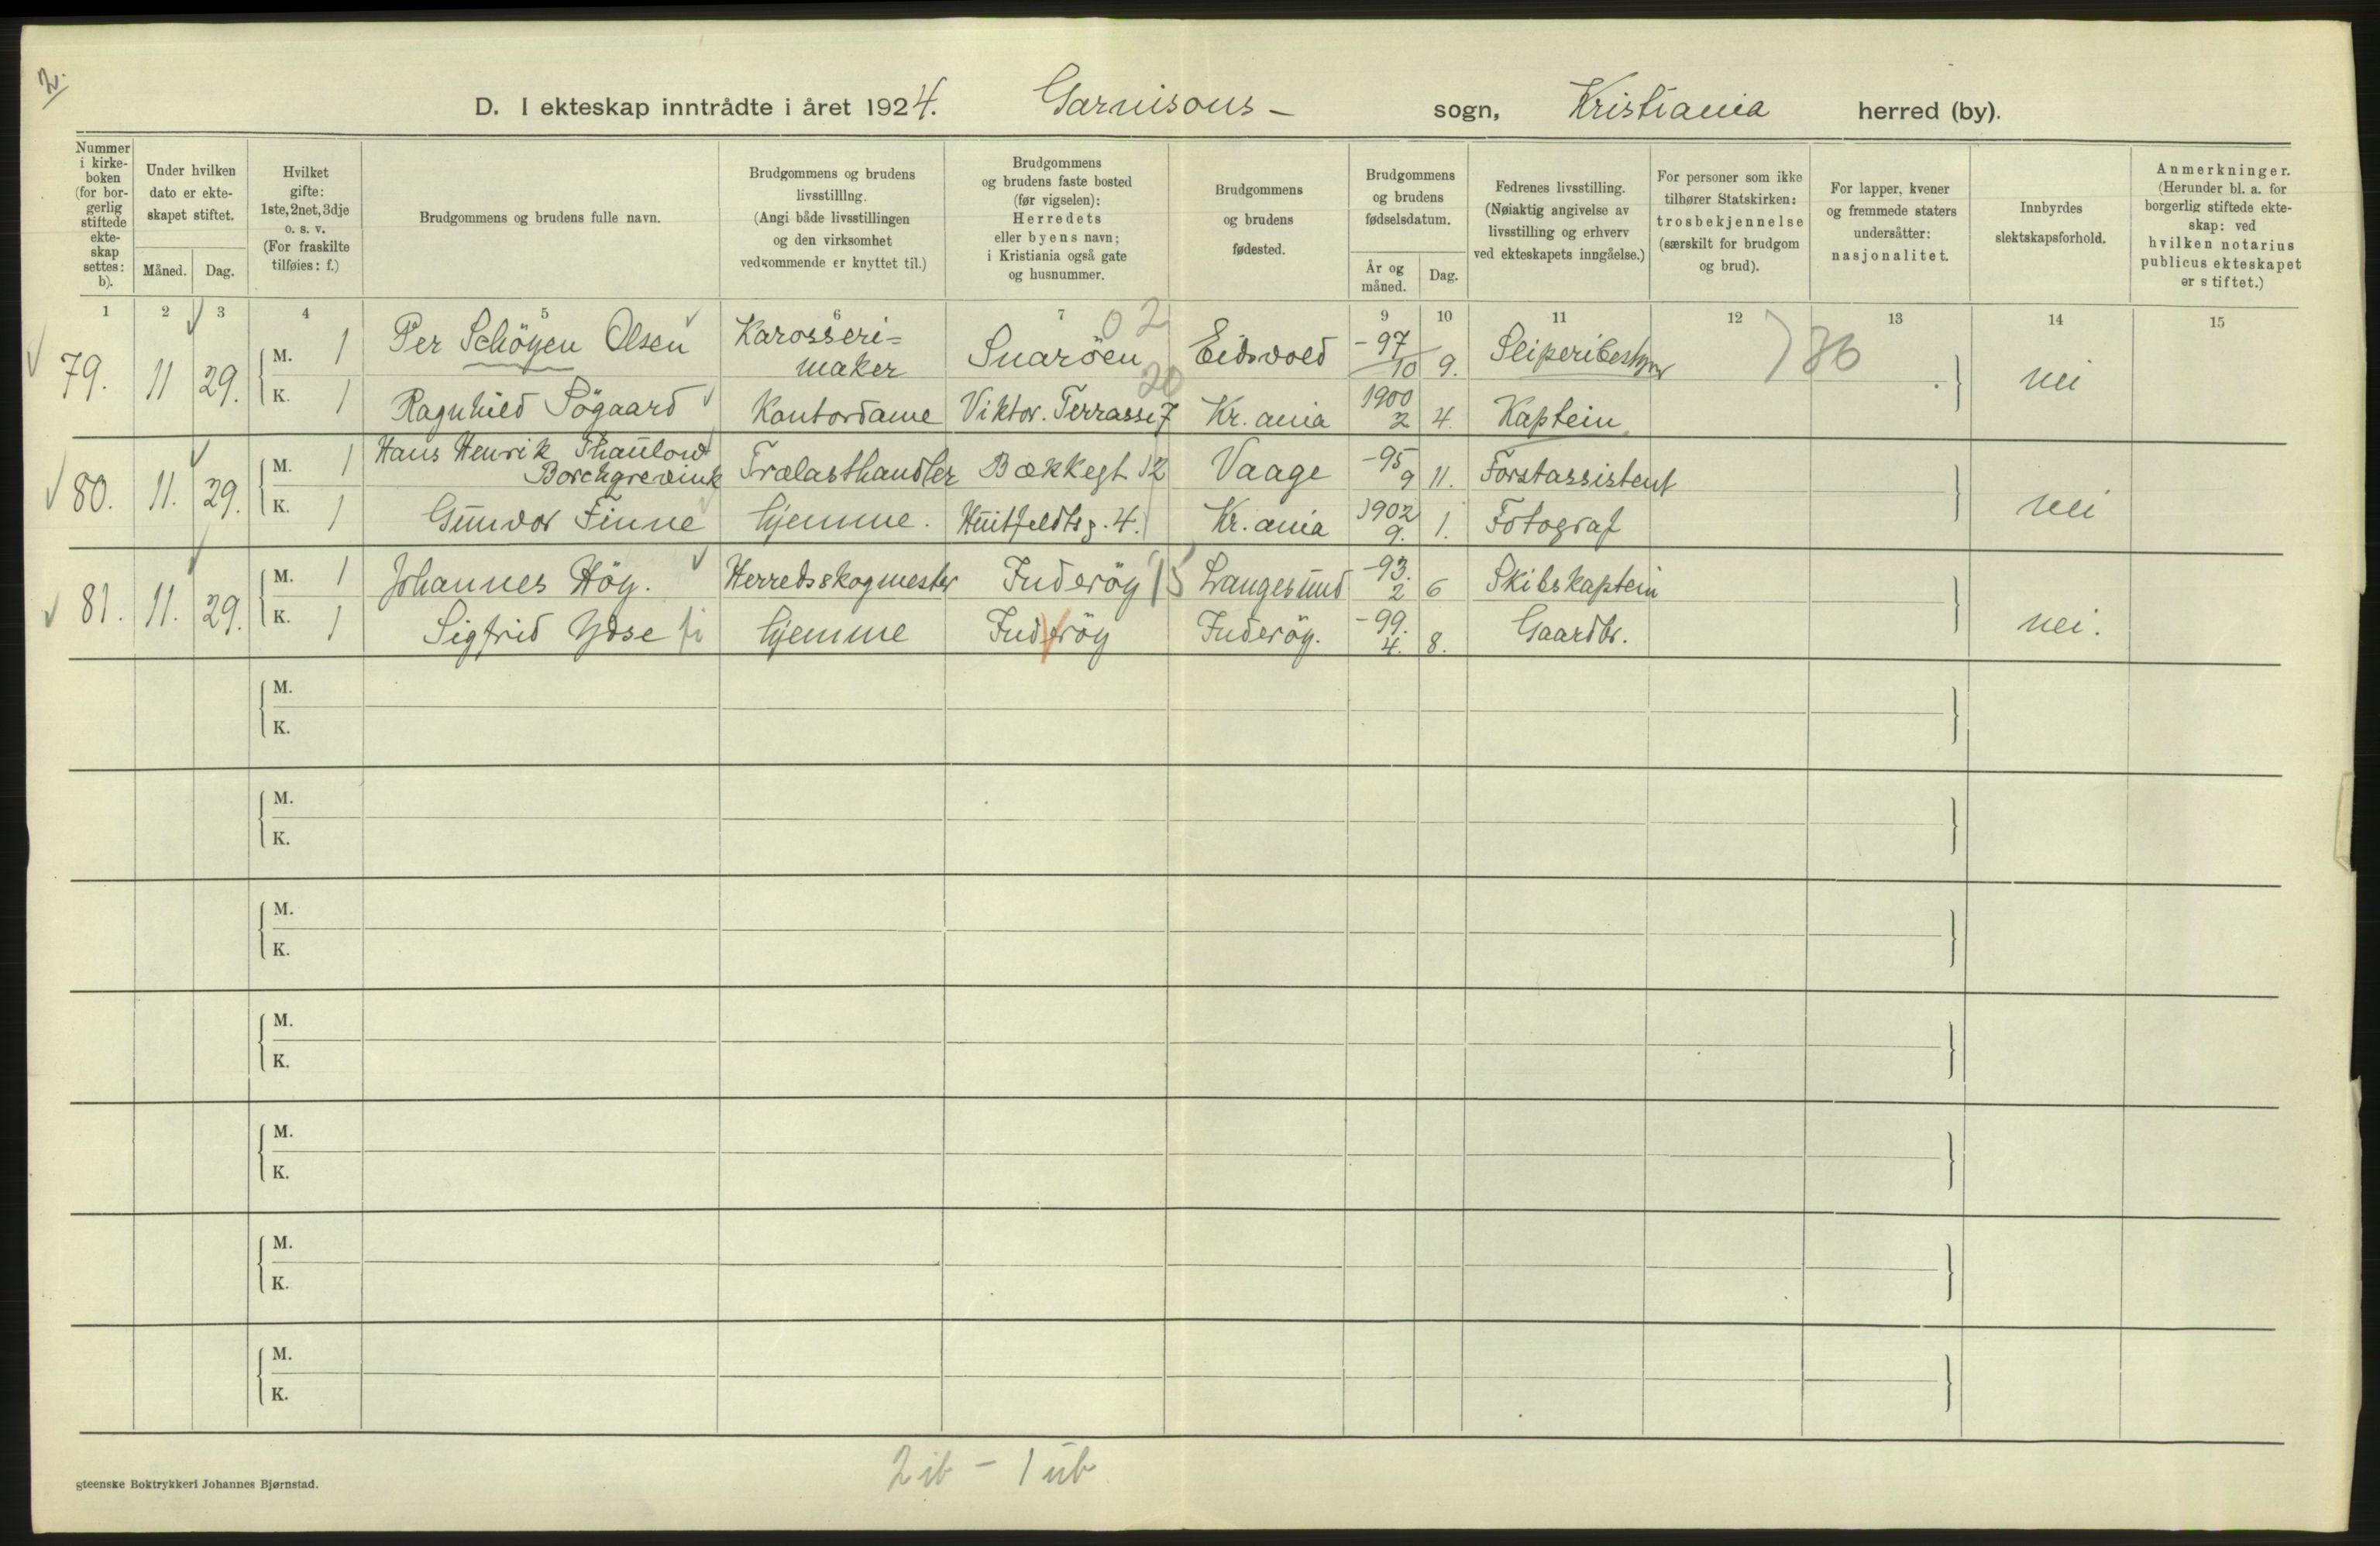 2.
D. I ekteskap inntrådte i året 1924. Garnisons- sogn, Kristiania herred (by).
Nummer i kirkeboken (for borgerlig stiftede ekteskap settes: b).
Under hvilken dato er ekteskapet stiftet.
Måned. Dag.
Hvilket gifte: 1ste, 2net, 3dje o. s. v. (For fraskilte tilføies: f.)
Brudgommens og brudens fulle navn.
Brudgommens og brudens livsstilling. (Angi både livsstillingen og den virksomhet vedkommende er knyttet til.)
Brudgommens og brudens faste bosted (før vigselen): Herredets eller byens navn; i Kristiania også gate og husnummer.
Brudgommens og brudens fødested.
Brudgommens og brudens fødselsdatum.
År og måned. Dag.
Fedrenes livsstilling. (Nøiaktig angivelse av livsstilling og erhverv ved ekteskapets inngåelse.)
For personer som ikke tilhører Statskirken: trosbekjennelse (særskilt for brudgom og brud).
For lapper, kvener og fremmede staters undersåtter: nasjonalitet.
Innbyrdes slektskapsforhold.
Anmerkninger. (Herunder bl. a. for borgerlig stiftede ekteskap: ved hvilken notarius publicus ekteskapet er stiftet.)
1 2 3 4 5 6 7 9 10 11 12 13 14 15
02
79. 11 29. M. 1 Per Schöyen Olsen Karosseri=maker Snaröen Eidsvold -97/10 9. Sliperibestyrer 86 nei
20
K. 1 Ragnhild Sögaard Kontordame Viktor. Terrasse 7 Kr.ania 1900 2 4. Kaptein
80. 11. 29. M. 1 Hans Henrik Thaulow Borchgrevink Trælasthandler Bækkegt 12 Vaage -95 9 11. Forstassistent nei
K. 1 Gunvor Finne hjemme. Huitfeldtsg. 4. Kr.ania 1902 9. 1. Fotograf
81. 11. 29. M. 1 Johannes Höy. Herredsskogmester Inderöy 15 Langesund -93. 2 6 Skibskaptein nei.
K. 1 Sigfrid Ydse hjemme Inderöy Inderöy. -99. 4. 8. Gaardbr.
M.
K.
M.
K.
M.
K.
M.
K.
M.
K.
M.
K.
M.
K.
2 ib - 1 ub
steenske Boktrykkeri Johannes Bjørnstad.